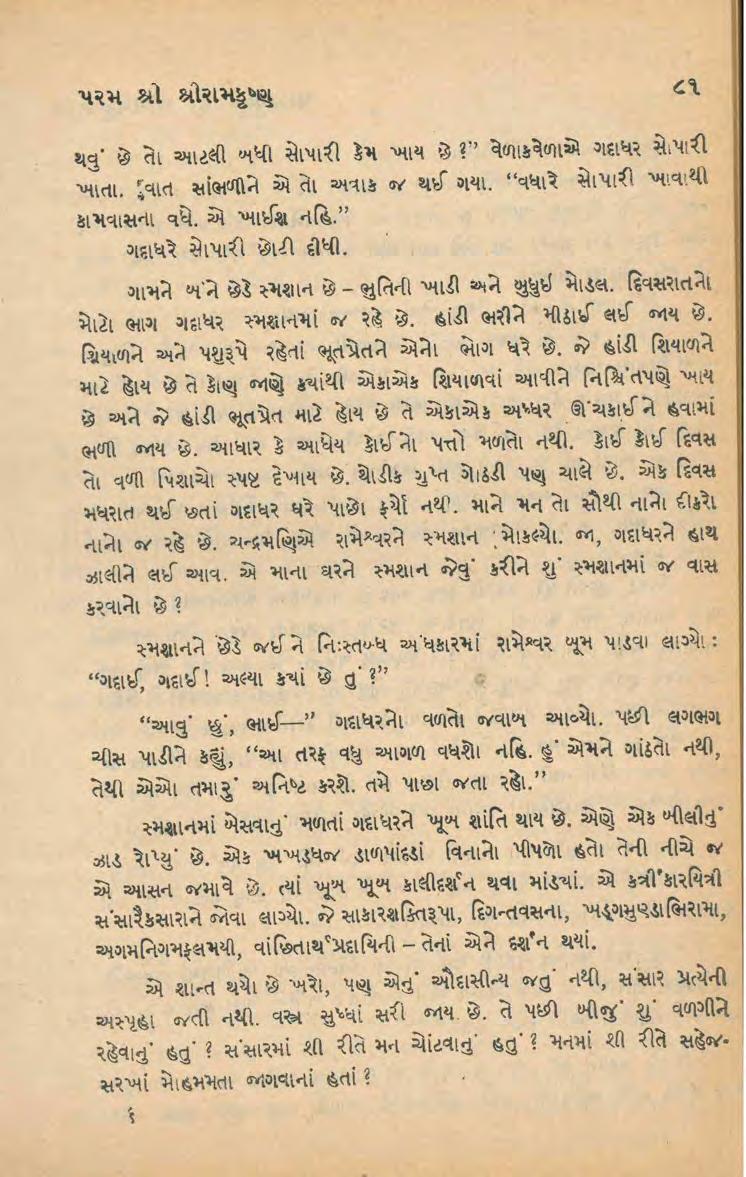 પરમ શ્રી શ્રીરામકૃષ્ણ
૮૧
થવું છે તો આટલી બધી સોપારી કેમ ખાય છે?” વેળાકવેળાએ ગદાધર સોપારી
ખાતા. વાત સાંભળીને એ તો અવાક જ થઈ ગયા. “વધારે સોપારી ખાવાથી
કામવાસના વધે. એ ખાઈશ નહિ.”
ગદાધરે સોપારી છોટી દીધી.
ગામને બંને છેડે સ્મશાન છે – ભુતિની ખાડી અને બુધુઇ મોડલ. દિવસરાતનો
મોટો ભાગ ગદાધર સ્મશાનમાં જ રહે છે. હાંડી ભરીને મીઠાઈ લઈ જાય છે.
શિયાળને અને પશુરૂપે રહેતાં ભૂતપ્રેતને એનો ભોગ ધરે છે. જે હાંડી શિયાળને
માટે હોય છે તે કોણ જાણે ક્યાંથી એકાએક શિયાળવાં આવીને નિશ્ચિંતપણે ખાય
છે અને જે હાંડી ભૂતપ્રેત માટે હોય છે તે એકાએક અધ્ધર ઊંચકાઈને હવામાં
ભળી જાય છે. આધાર કે આધેય કોઈનો પત્તો મળતો નથી. કોઈ કોઈ દિવસ
તો વળી પિશાચો સ્પષ્ટ દેખાય છે. થોડીક ગુપ્ત ગોઠડી પણ ચાલે છે. એક દિવસ
મધરાત થઈ છતાં ગદાધર ઘરે પાછો ફર્યો નથી. માને મન તો સૌથી નાનો દીકરો
નાનો જ રહે છે. ચન્દ્રમણિએ રામેશ્વરને સ્મશાન મોકલ્યો. જા, ગદાધરને હાથ
ઝાલીને લઈ આવ. એ માના ઘરને સ્મશાન જેવું કરીને શું સ્મશાનમાં જ વાસ
કરવાનો છે?
સ્મશાનને છેડે જઈને નિઃસ્તબ્ધ અંધકારમાં રામેશ્વર બૂમ પાડવા લાગ્યો:
“ગદાઈ, ગદાઈ! અલ્યા ક્યાં છે તું?”
“આવું છું, ભાઈ—” ગદાધરનો વળતો જવાબ આવ્યો. પછી લગભગ
ચીસ પાડીને કહ્યું, “આ તરફ વધુ આગળ વધશો નહિ. હું એમને ગાંઠતો નથી,
તેથી એઓ તમારું અનિષ્ટ કરશે. તમે પાછા જતા રહો.”
સ્મશાનમાં બેસવાનું મળતાં ગદાધરને ખૂબ શાંતિ થાય છે. એણે એક બીલીનું
ઝાડ રોપ્યું છે. એક ખખડધજ ડાળપાંદડાં વિનાનો પીપળો હતો તેની નીચે જ
એ આસન જમાવે છે. ત્યાં ખૂબ ખૂબ કાલીદર્શન થવા માંડ્યાં. એ કર્ત્રીકારયિત્રી
સંસારૈકસારાને જોવા લાગ્યો. જે સાકારશક્તિરૂપા, દિગન્તવસના, ખડ્ગમુણ્ડાભિરામા,
અગમનિગમફલમયી, વાંછિતાર્થપ્રદાયિની – તેનાં એને દર્શન થયાં.
એ શાન્ત થયો છે ખરો, પણ એનું ઔદાસીન્ય જતું નથી, સંસાર પ્રત્યેની
અસ્પૃહા જતી નથી. વસ્ત્ર સુધ્ધાં સરી જાય છે. તે પછી બીજું શું વળગીને
રહેવાનું હતું? સંસારમાં શી રીતે મન ચોંટવાનું હતું? મનમાં શી રીતે સહેજ-
સરખાં મોહમમતા જાગવાનાં હતાં?
૬